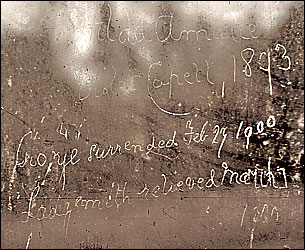 Ada
Capell, 1893
Cronje surrended Feb 27 1900
Ladysmith relieved March 1